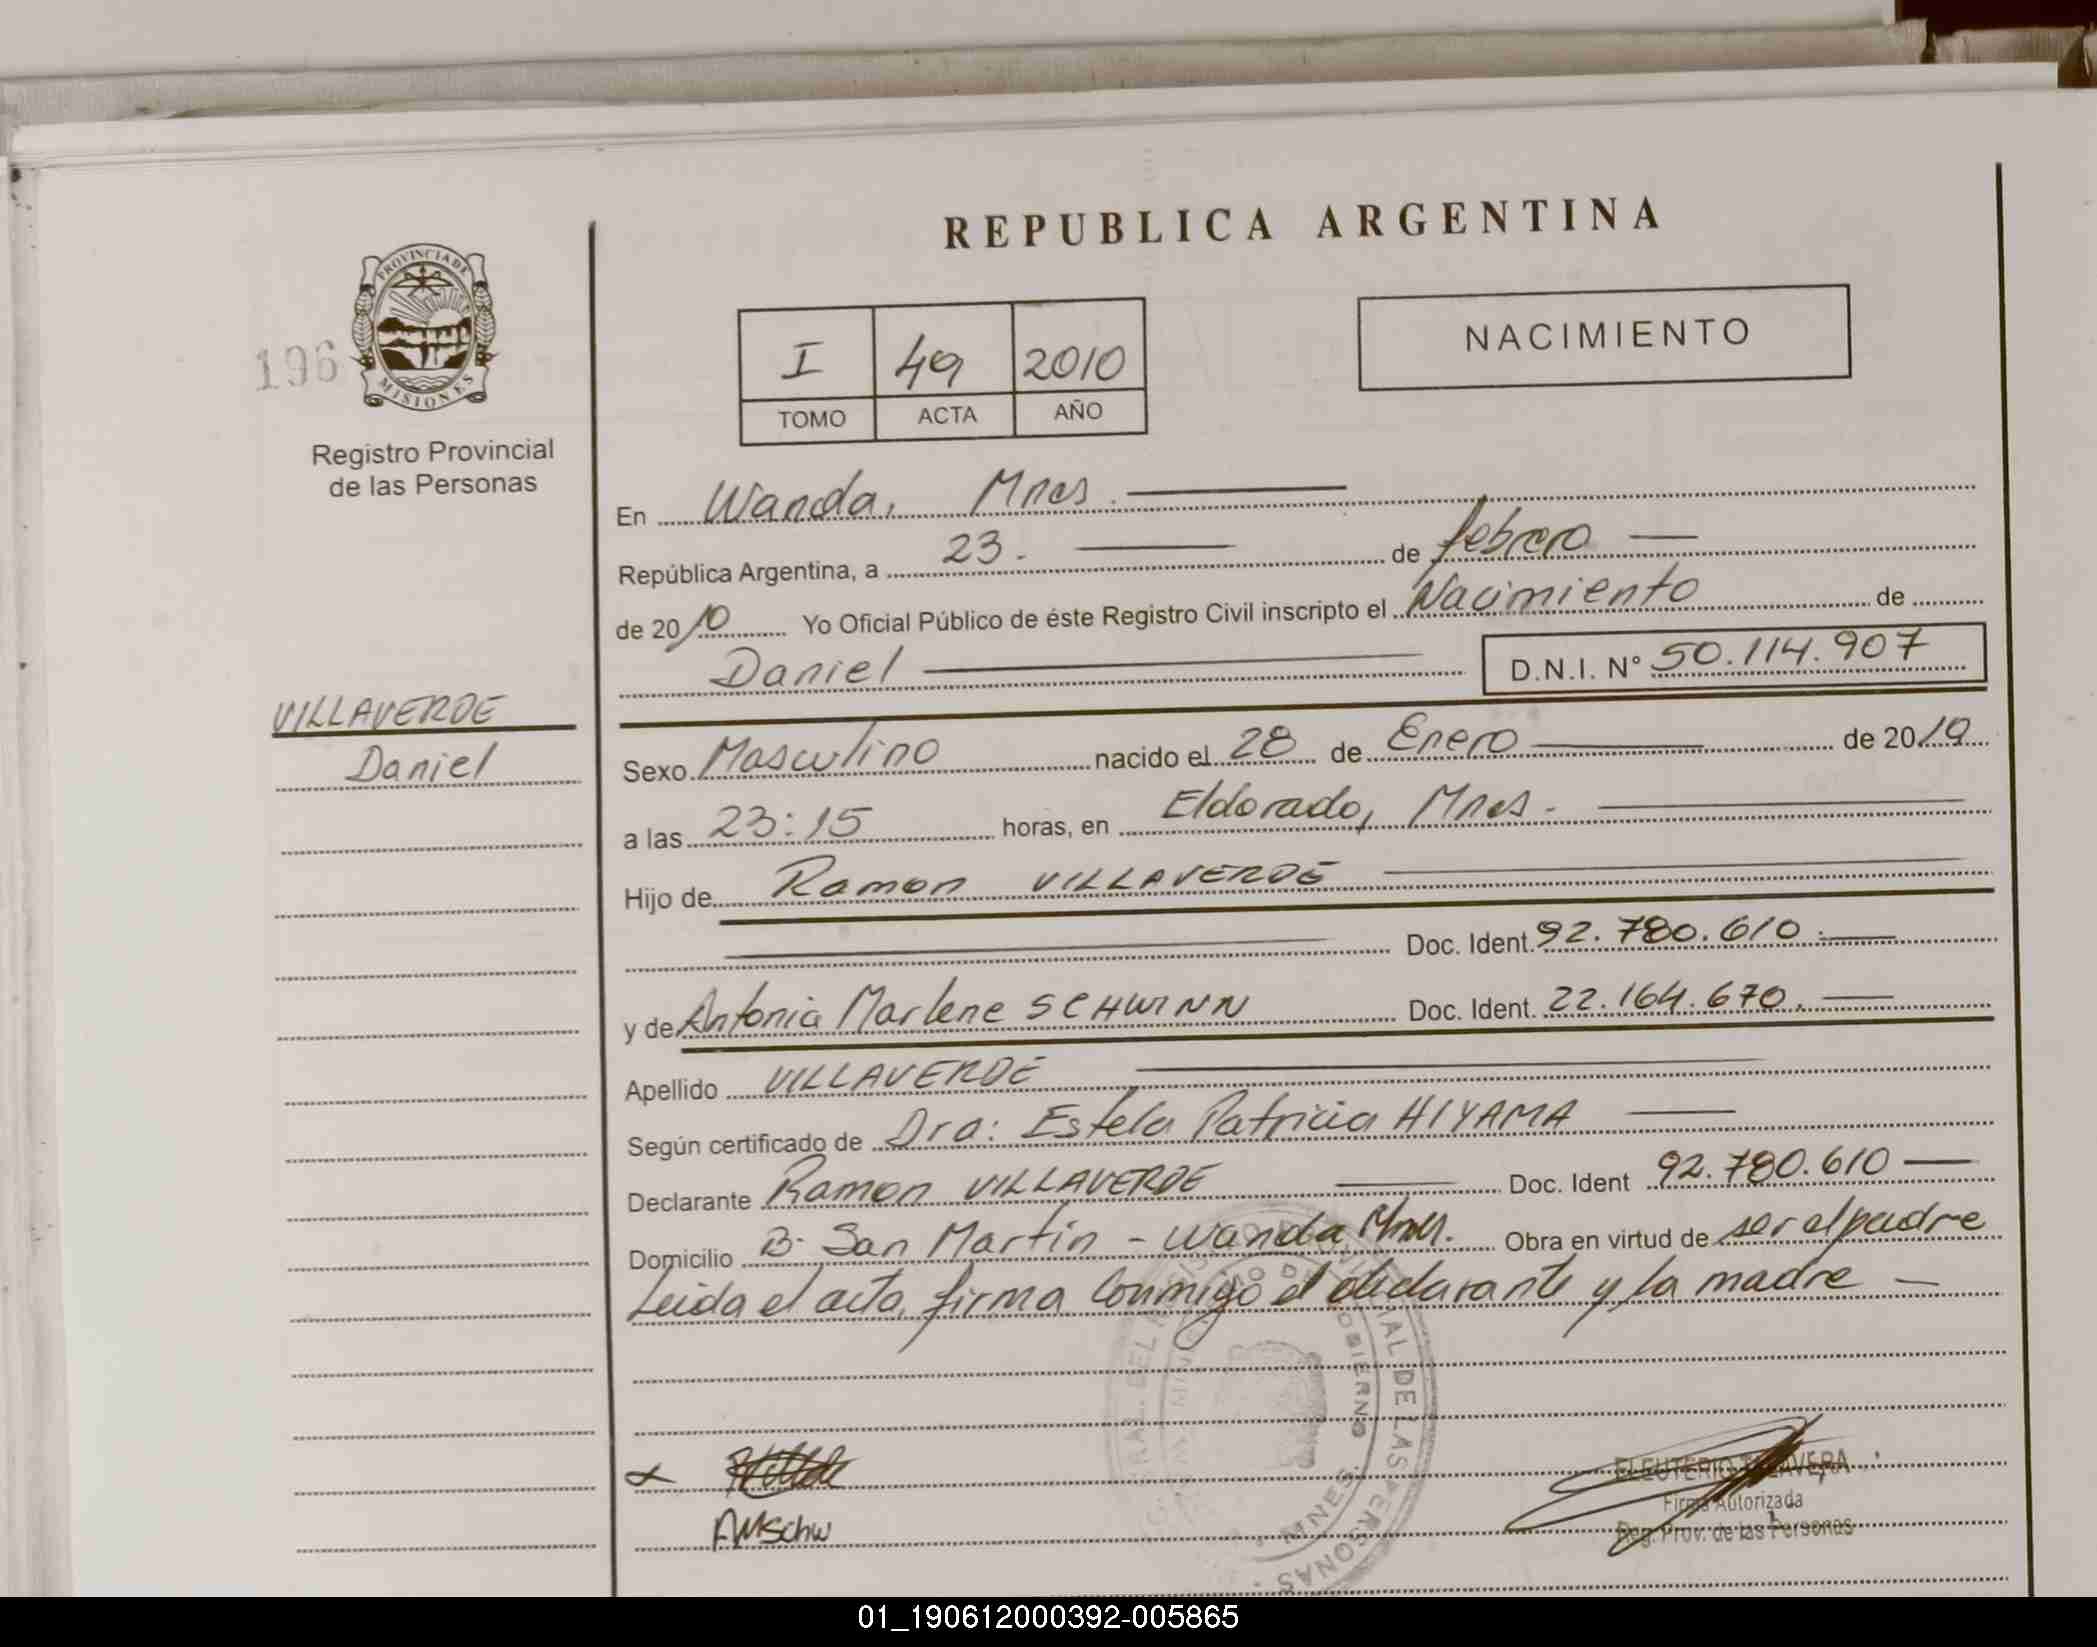 REPUBLICA ARGENTINA
PROVINCIA DE
MISIONES
196
Registro Provincial
de las Personas
I 49 2010
TOMO ACTA AÑO
NACIMIENTO
En Wanda, Mnes.
República Argentina, a 23. de febrero
de 2010 Yo Oficial Público de éste Registro Civil inscripto el Nacimiento de
Daniel D.N.I. N° 50.114.907
VILLAVERDE
Daniel
Sexo Masculino nacido el 28 de Enero de 2010
a las 23:15 horas, en Eldorado, Mnes.
Hijo de Ramon VILLAVERDE
Doc. Ident. 92.780.610
y de Antonia Marlene SCHWINN Doc. Ident. 22.164.670.
Apellido VILLAVERDE
Según certificado de Dra: Estela Patricia HIYAMA
Declarante Ramon VILLAVERDE Doc. Ident 92.780.610
Domicilio B. San Martin - Wanda Mnes. Obra en virtud de ser el padre
Leida el acta, firma conmigo el declarante y la madre
DE LAS PERSONAS
GOBIERNO
MNES.
AMSchw
ELEUTERIO TALAVERA
Firma Autorizada
Reg. Prov. de las Personas
01_190612000392-005865